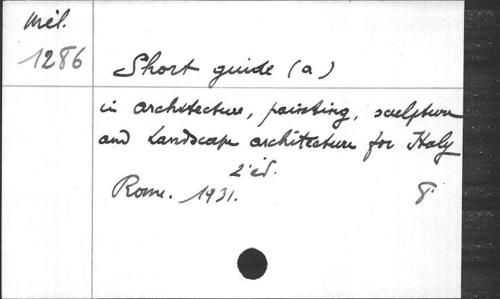 Mél.
1286
Short guide (a)
in architecture, painting, sculpture
and Landscape architecture for Italy
2e éd.
Rome. 1931. 8°